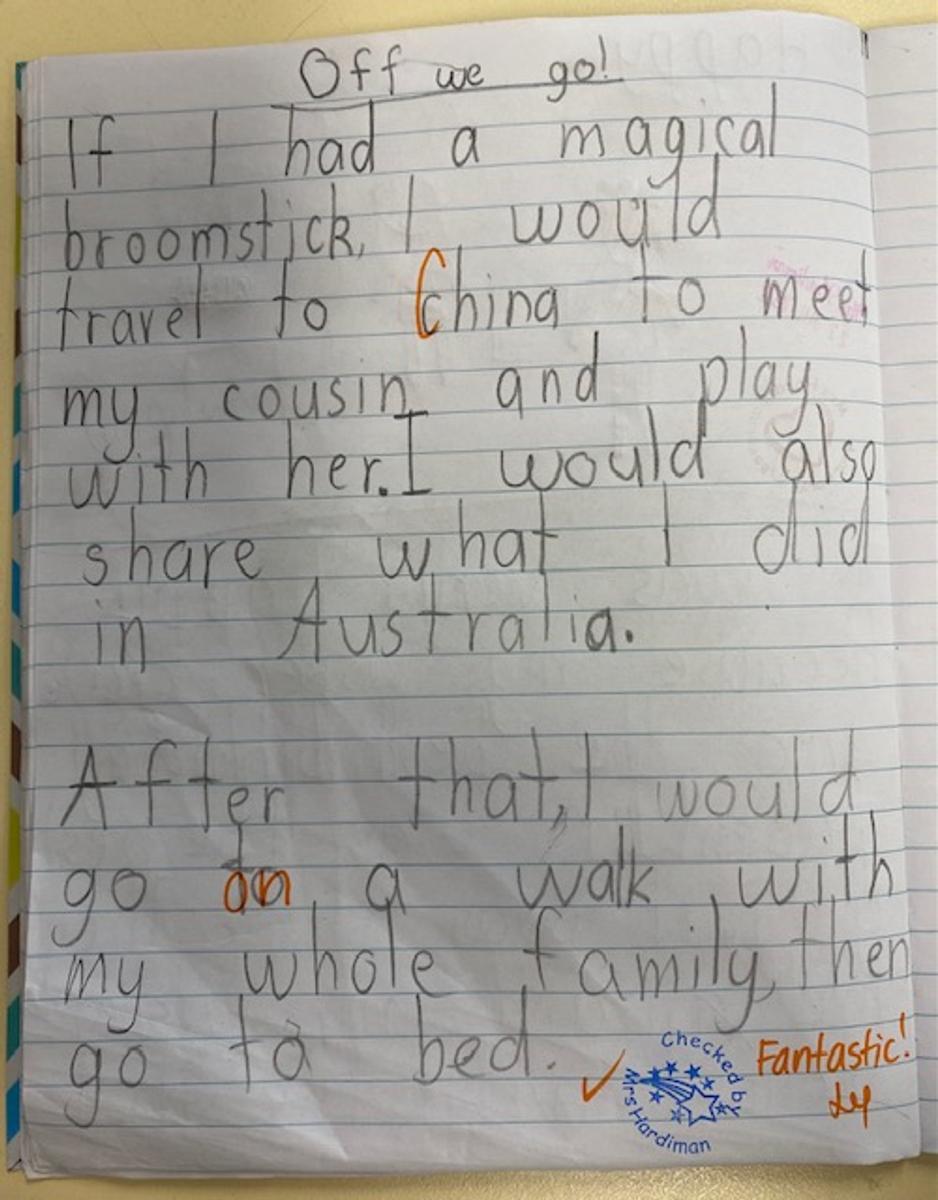 Off we go!
If I had a magical
broomstick, I would
travel to China to meet
my cousin and play
with her. I would also
share what I did
in Australia.
After that, I would
go on a walk with
my whole family, then
go to bed.
Checked by
Mrs Hardiman
Fantastic!